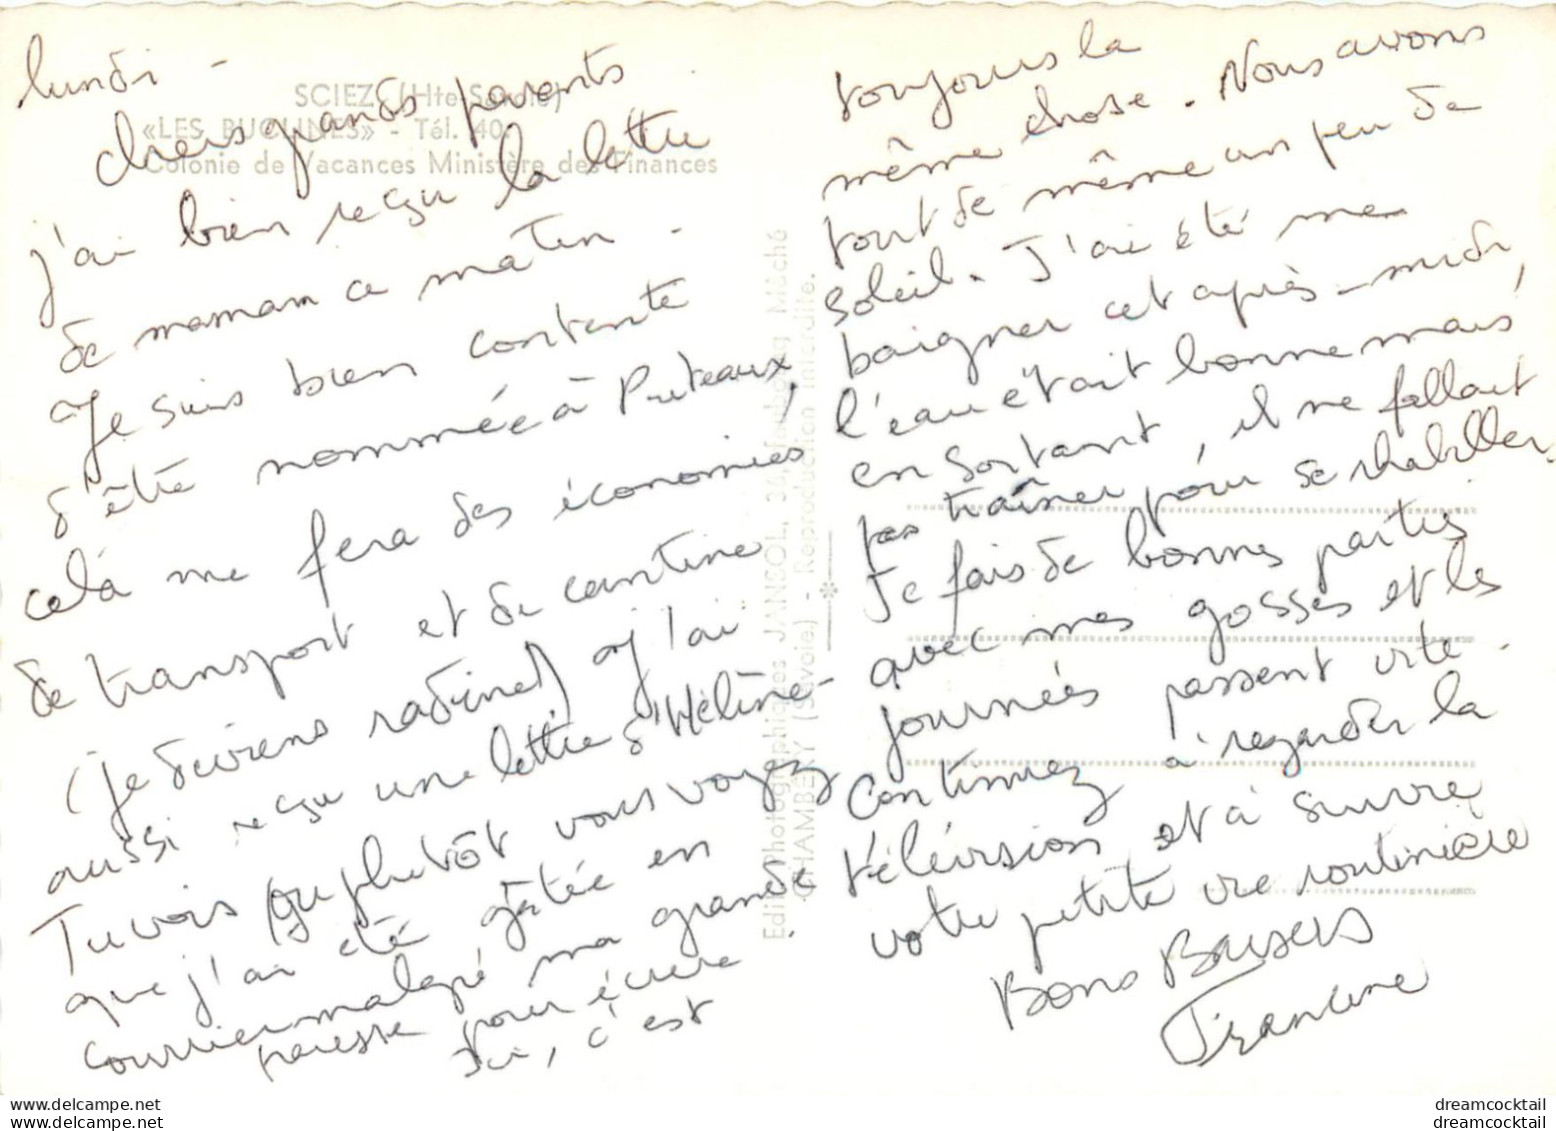 lundi -
SCIEZ (Hte-Savoie)
«LES BUCLINES» - Tél. 40.
Colonie de Vacances Ministère des Finances
chers grands parents
j'ai bien reçu la lettre
de maman ce matin -
Je suis bien contente
d'être nommée à Puteaux,
celà me fera des économies
de transport et de cantine
(je deviens radine) j'ai
aussi reçu une lettre d'Hélène -
Tu vois (ou plutôt vous voyez
que j'ai été gâtée en
courrier malgré ma grande
paresse pour écrire
Ici, c'est
Edit. Photographiques JANSOL, 34, Faubourg Mâché
CHAMBÉRY (Savoie) - Reproduction interdite.
toujours la
même chose. Nous avons
tout de même un peu de
soleil. J'ai été me
baigner cet après-midi,
l'eau était bonne mais
en sortant, il ne fallait
pas traîner pour se rhabiller.
Je fais de bonnes parties
avec mes gosses et les
journées passent vite.
Continuez à regarder la
télévision et à suivre
votre petite vie routinière
Bons Baisers
Francine
dreamcocktail
dreamcocktail
dreamcocktail
dreamcocktail